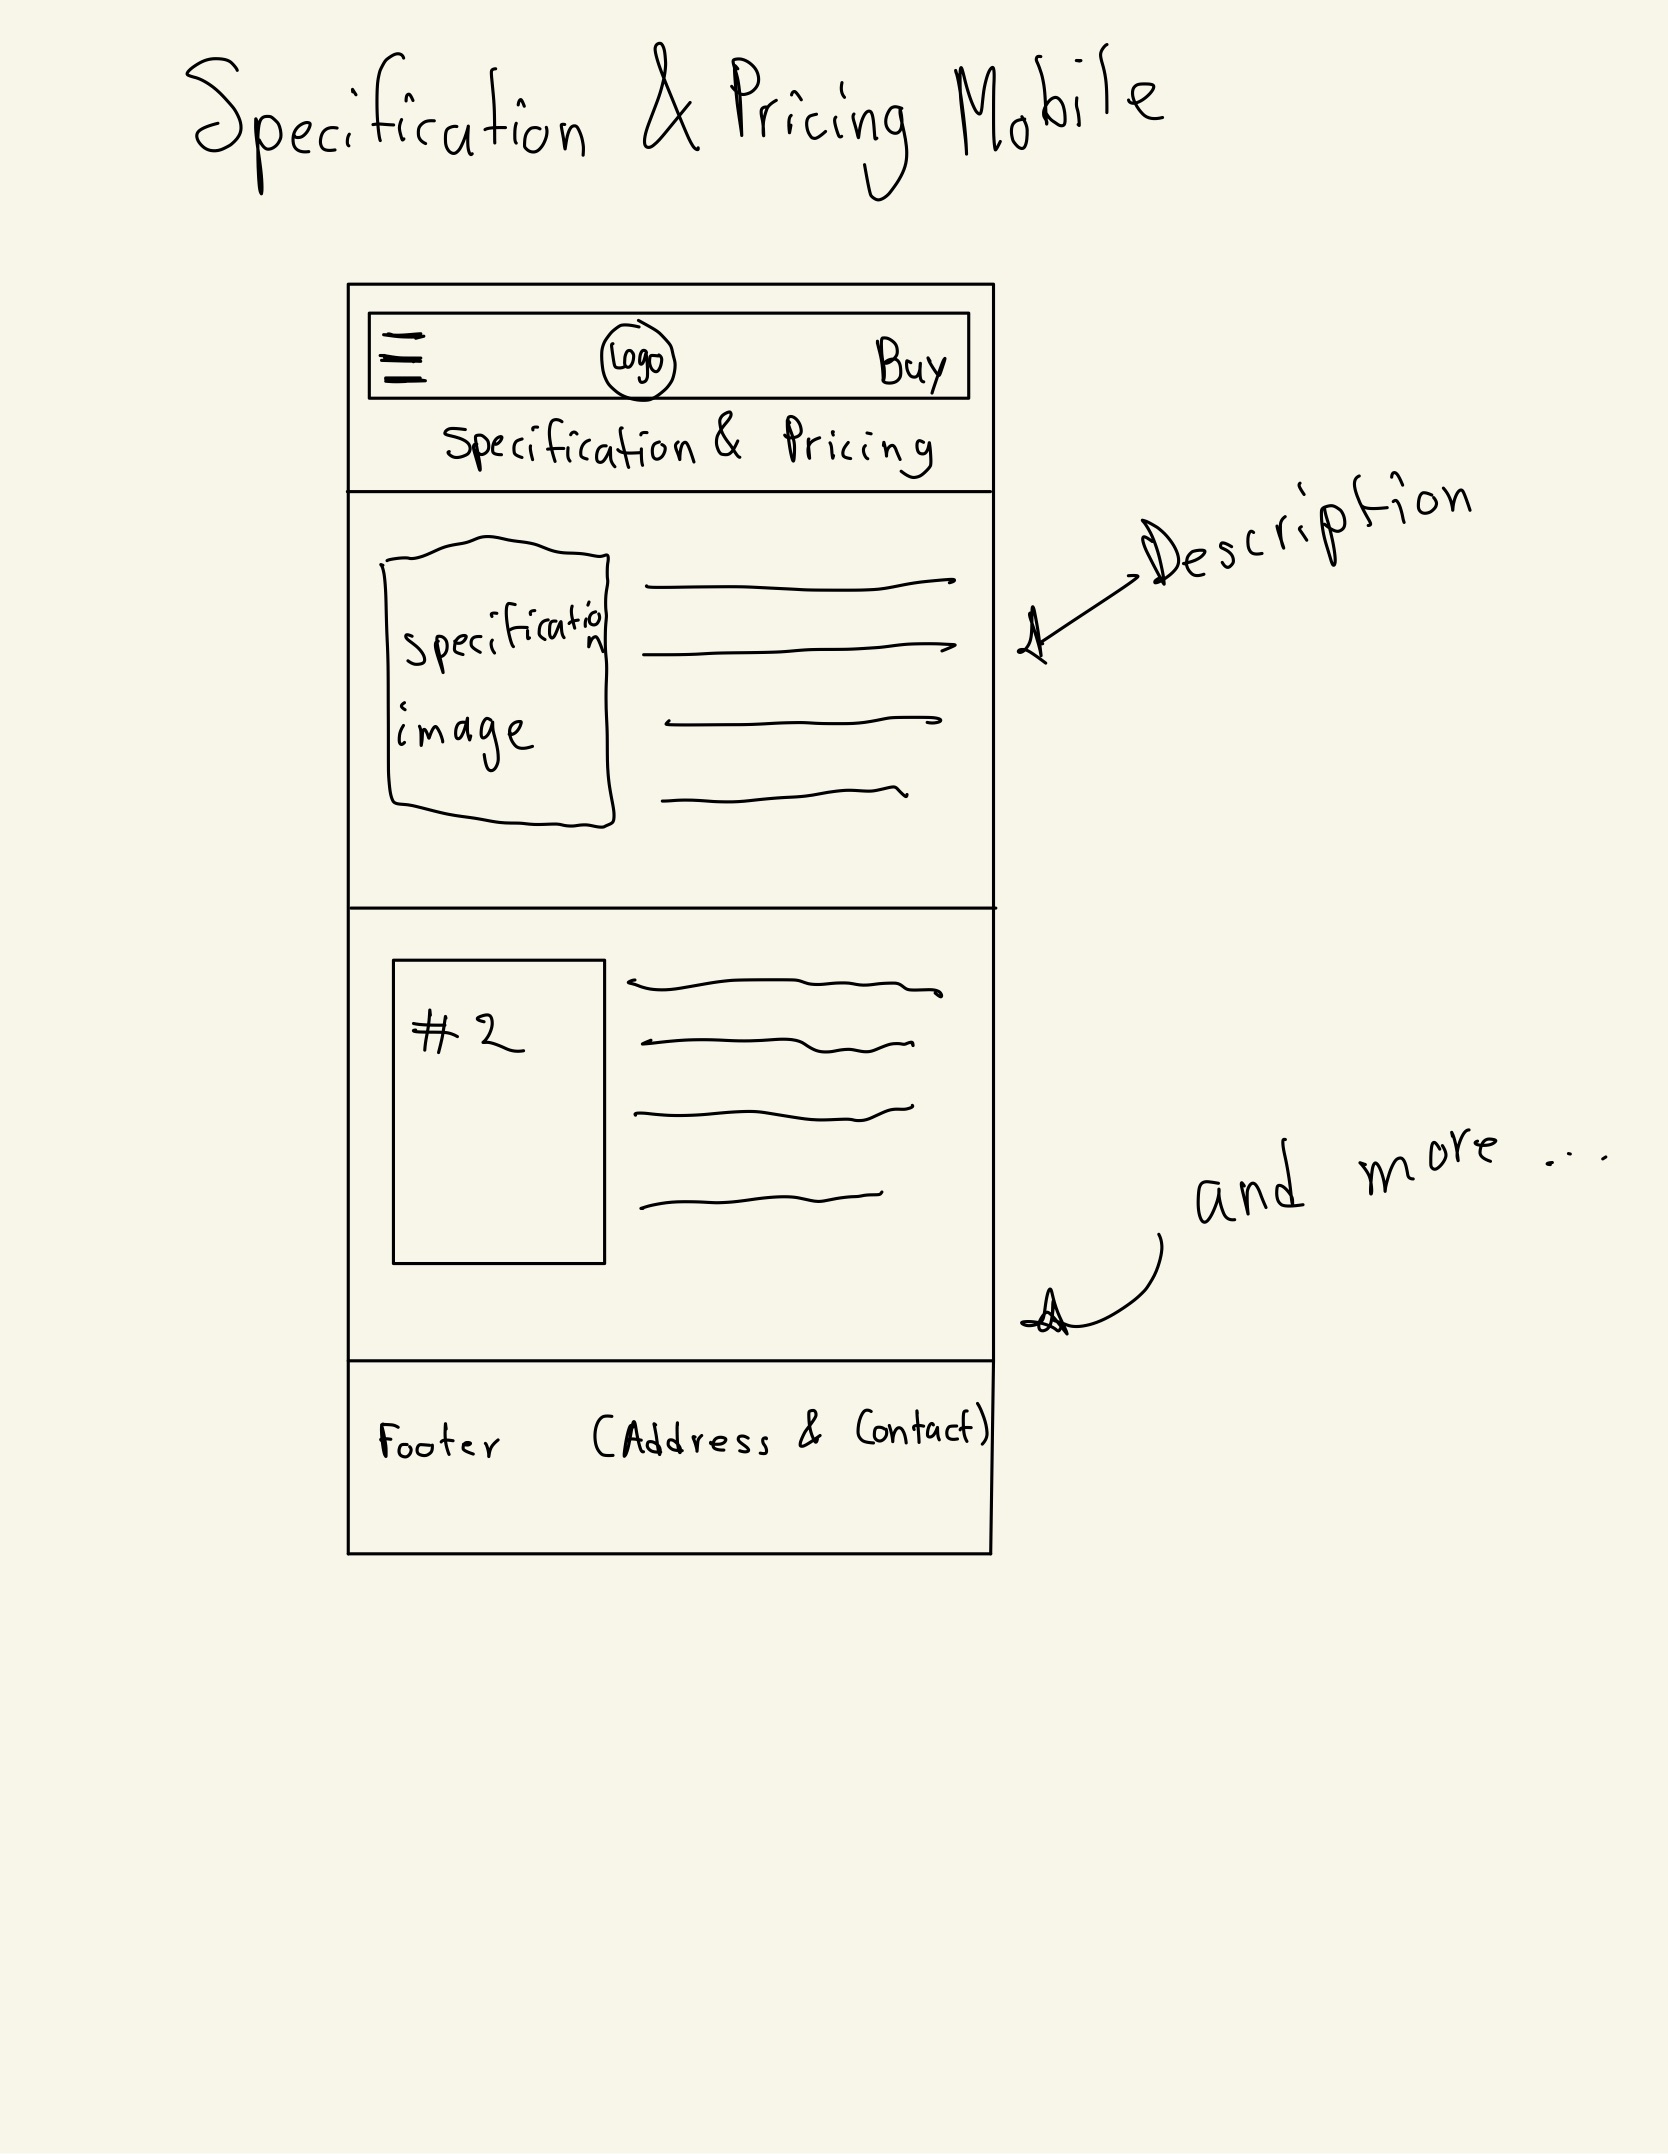 Specification & Pricing Mobile
Logo
Buy
Specification & Pricing
Description
specification
image
# 2
and more ...
Footer (Address & Contact)